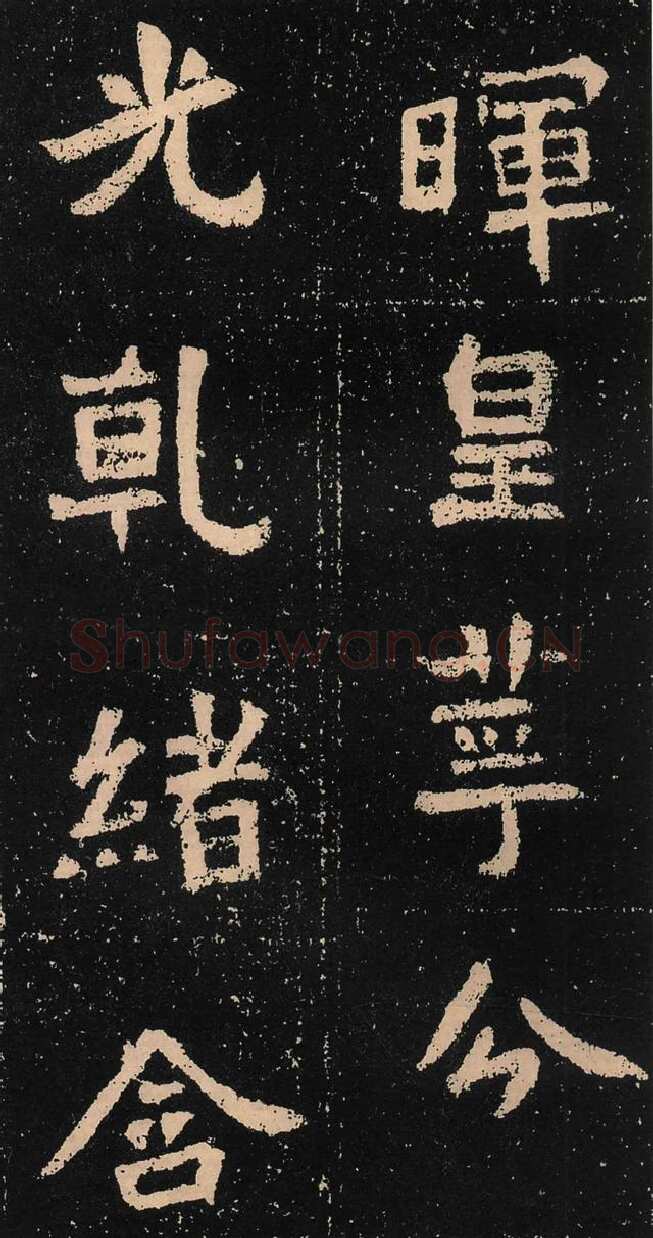 暉皇萼分
光乾緒含
Shufawang.CN